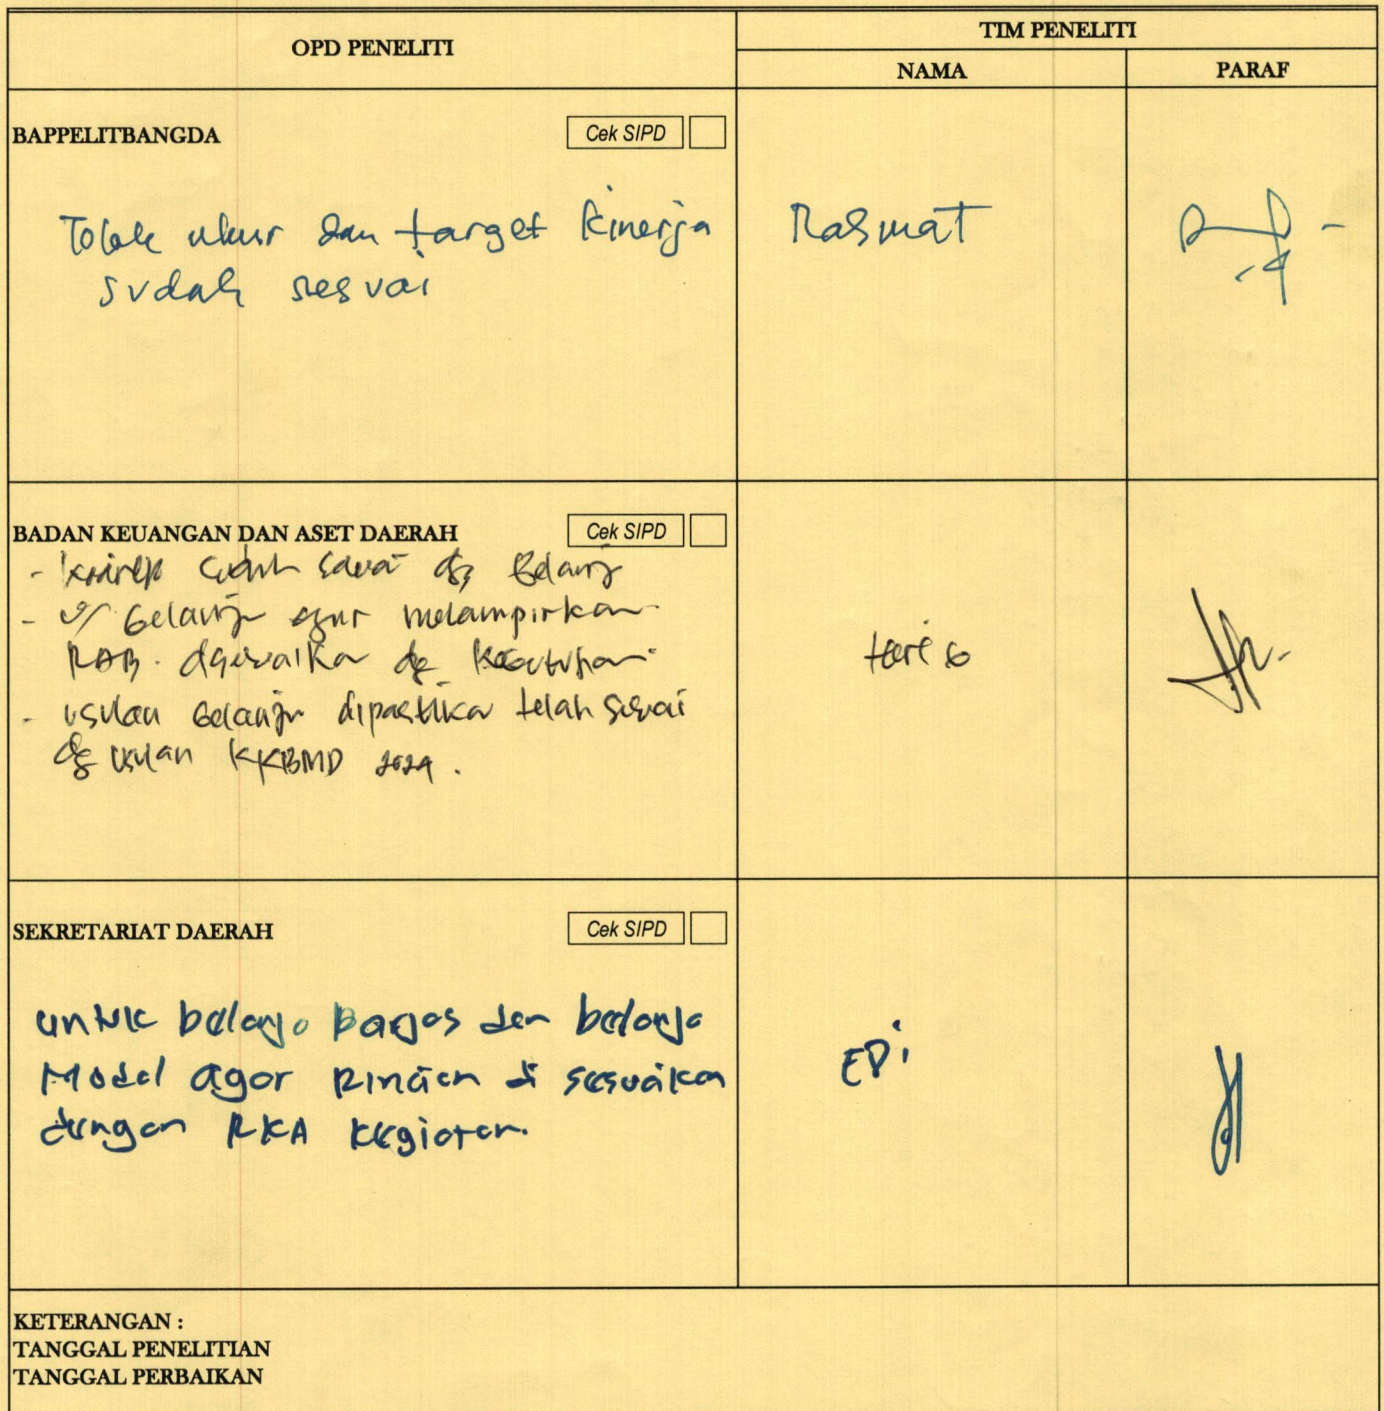 OPD PENELITI
TIM PENELITI
NAMA
PARAF
BAPPELITBANGDA
Cek SIPD
Tolak ukur dan target kinerja
sudah sesuai
Rasmat
BADAN KEUANGAN DAN ASET DAERAH
Cek SIPD
- sudah sesuai dg
- agar melampirkan
RAB. dg
- usulan belanja dipastika telah sesuai
dg usulan 2024.
SEKRETARIAT DAERAH
Cek SIPD
untuk belanja Barjas dan belanja
Modal agar Rincian di sesuaikan
dengan RKA kegiatan.
EDi
KETERANGAN :
TANGGAL PENELITIAN
TANGGAL PERBAIKAN